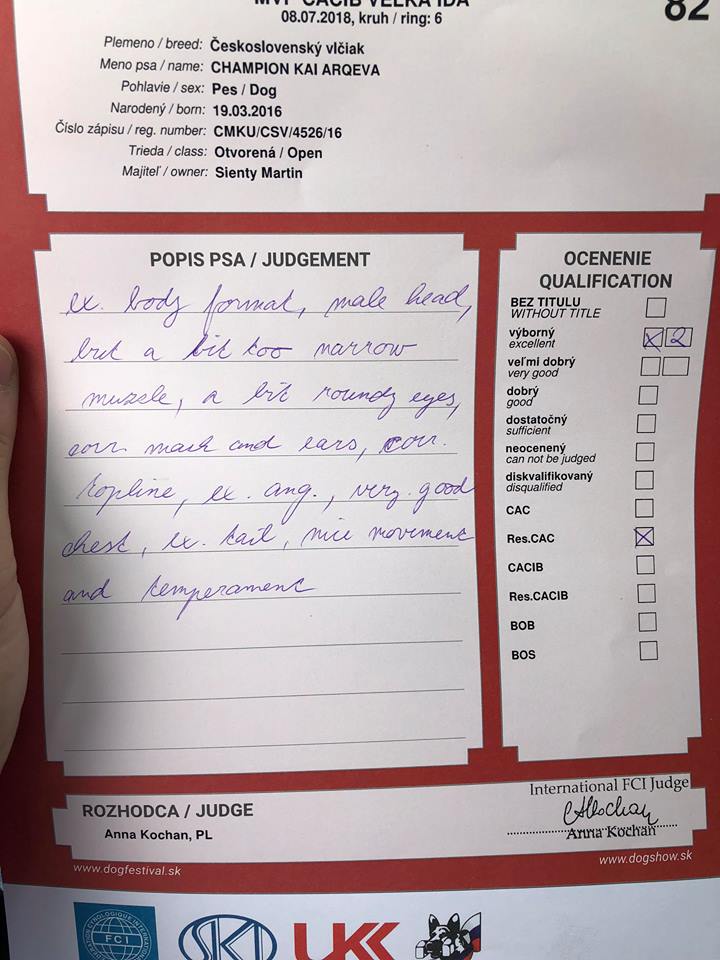 MVP CACIB VEĽKÁ IDA
82
08.07.2018, kruh / ring: 6
Plemeno / breed: Československý vlčiak
Meno psa / name: CHAMPION KAI ARQEVA
Pohlavie / sex: Pes / Dog
Narodený / born: 19.03.2016
Číslo zápisu / reg. number: CMKU/CSV/4526/16
Trieda / class: Otvorená / Open
Majiteľ / owner: Sienty Martin
POPIS PSA / JUDGEMENT
ex. body format, male head,
but a bit too narrow
muzzle, a bit roundy eyes,
corr mask and ears, corr.
topline, ex. ang., very good
chest, ex. tail, nice movement
and temperament
OCENENIE
QUALIFICATION
BEZ TITULU
WITHOUT TITLE
výborný X 2
excellent
veľmi dobrý
very good
dobrý
good
dostatočný
sufficient
neocenený
can not be judged
diskvalifikovaný
disqualified
CAC
Res.CAC X
CACIB
Res.CACIB
BOB
BOS
ROZHODCA / JUDGE
Anna Kochan, PL
International FCI Judge
AKochan
Anna Kochan
www.dogfestival.sk
www.dogshow.sk
FCI
SKJ
UKK